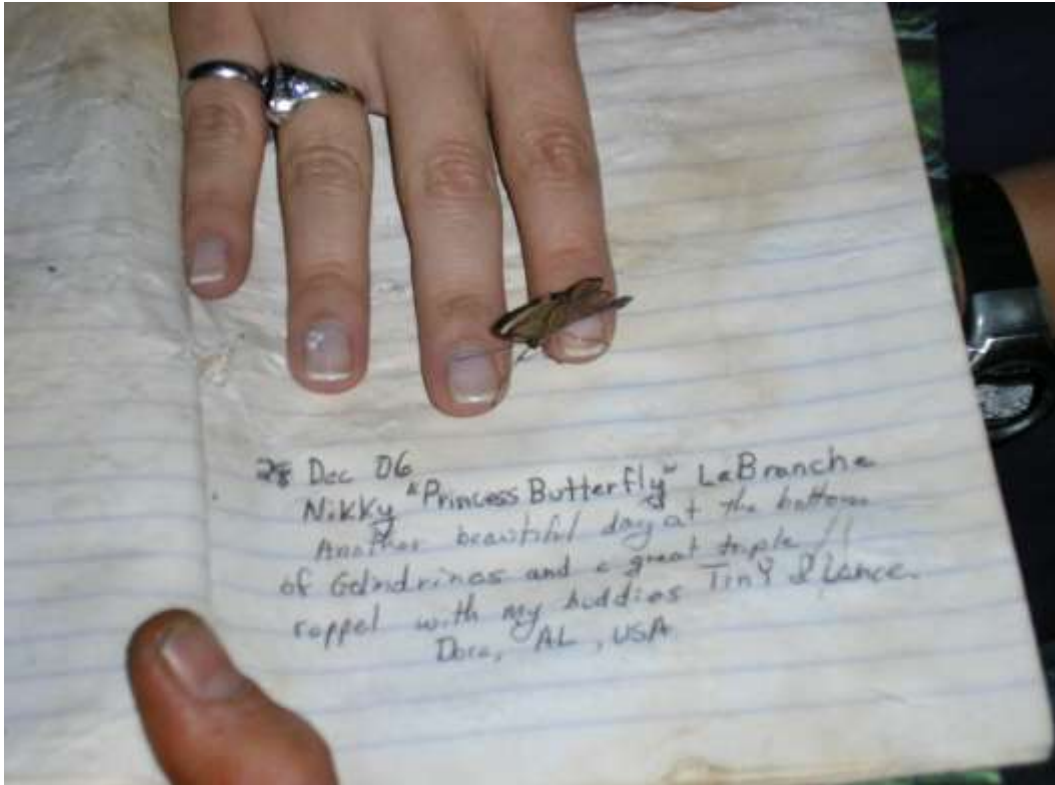 28 Dec 06
Nikky "Princess Butterfly" LaBranche
Another beautiful day at the bottom
of Golondrinas and a great triple
rappel with my buddies Tiny & Lance.
Dora, AL, USA